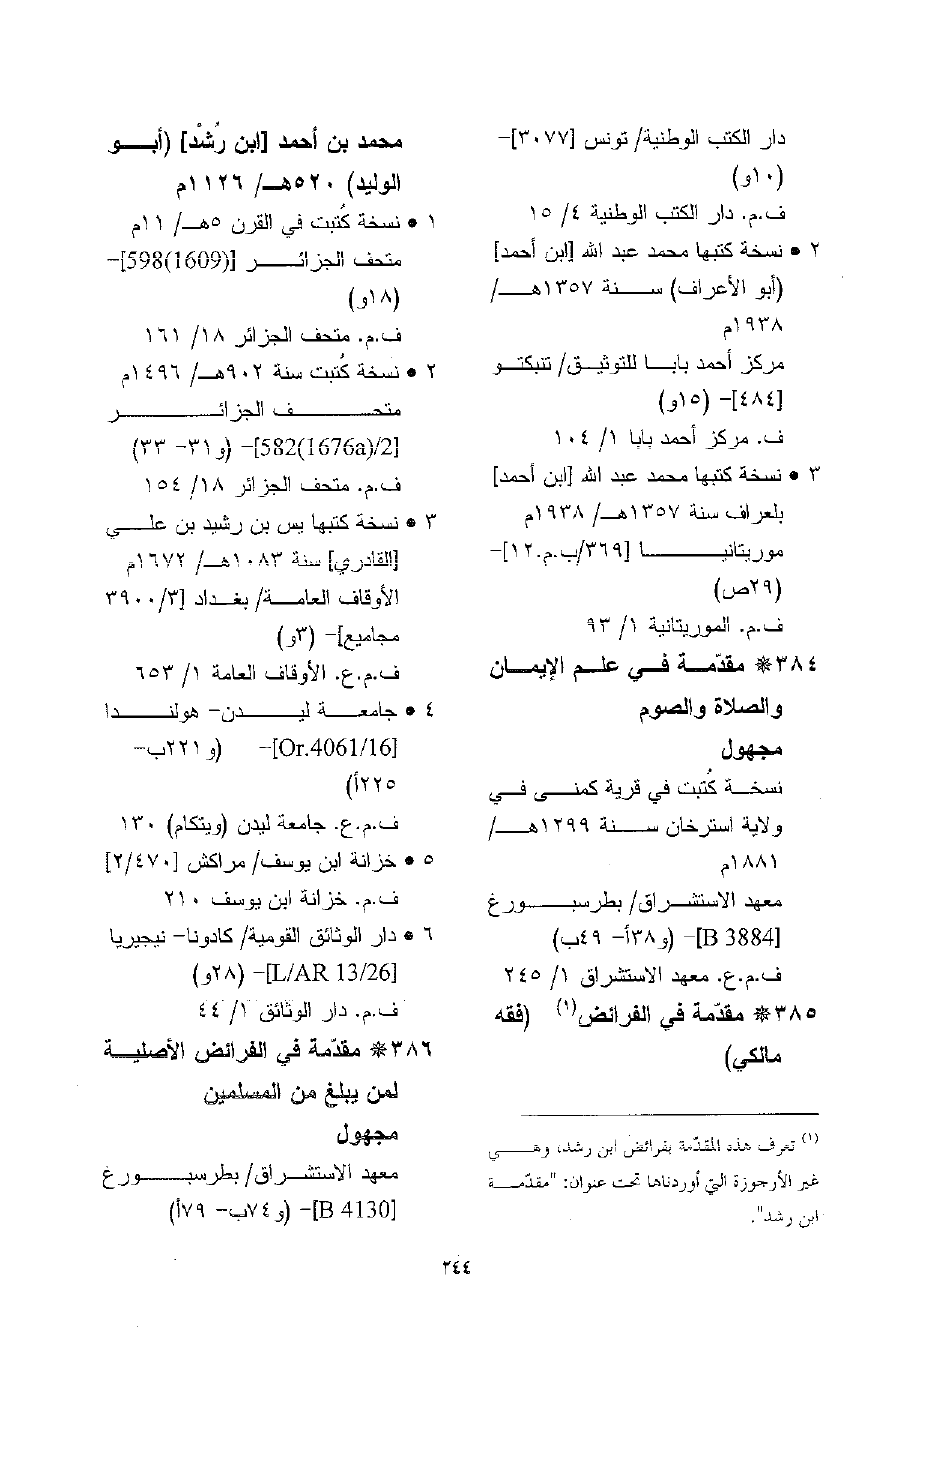 دار الكتب الوطنية/ تونس [٣٠٧٧]–
(١٠و)
ف.م. دار الكتب الوطنية ٤/ ١٥
٢ • نسخة كتبها محمد عبد الله [ابن أحمد]
(أبو الأعراف) سنة ١٣٥٧هـ/
١٩٣٨م
مركز أحمد بابا للتوثيق/ تنبكتو
[٤٨٤]– (١٥و)
ف. مركز أحمد بابا ١/ ١٠٤
٣ • نسخة كتبها محمد عبد الله [ابن أحمد]
بلعراف سنة ١٣٥٧هـ/ ١٩٣٨م
موريتانيا [٣٦٩/ب.م.١٢]–
(٢٩ص)
ف.م. الموريتانية ١/ ٩٣
٣٨٤* مقدّمة في علم الإيمان
والصلاة والصوم
مجهول
نسخة كُتبت في قرية كمنى في
ولاية استرخان سنة ١٢٩٩هـ/
١٨٨١م
معهد الاستشراق/ بطرسبورغ
[B 3884]– (و٣٨أ– ٤٩ب)
ف.م.ع. معهد الاستشراق ١/ ٢٤٥
٣٨٥* مقدّمة في الفرائض(١) (فقه
مالكي)
(١) تعرف هذه المقدّمة بفرائض ابن رشد، وهي
غير الأرجوزة التي أوردناها تحت عنوان: "مقدّمة
ابن رشد".
محمد بن أحمد [ابن رُشْد] (أبو
الوليد) ٥٢٠هـ/ ١١٢٦م
١ • نسخة كُتبت في القرن ٥هـ/ ١١م
متحف الجزائر [598(1609)]–
(١٨و)
ف.م. متحف الجزائر ١٨/ ١٦١
٢ • نسخة كُتبت سنة ٩٠٢هـ/ ١٤٩٦م
متحف الجزائر
[582(1676a)/2]– (و٣١– ٣٣)
ف.م. متحف الجزائر ١٨/ ١٥٤
٣ • نسخة كتبها يس بن رشيد بن علي
[القادري] سنة ١٠٨٣هـ/ ١٦٧٢م
الأوقاف العامة/ بغداد [٣٩٠٠/٣
مجاميع]– (٣و)
ف.م.ع. الأوقاف العامة ١/ ٦٥٣
٤ • جامعة ليدن– هولندا
[Or.4061/16]– (و٢٢١ب–
٢٢٥أ)
ف.م.ع. جامعة ليدن (ويتكام) ١٣٠
٥ • خزانة ابن يوسف/ مراكش [٢/٤٧٠]
ف.م. خزانة ابن يوسف ٢١٠
٦ • دار الوثائق القومية/ كادونا– نيجيريا
[L/AR 13/26]– (٢٨و)
ف.م. دار الوثائق ١/ ٤٤
٣٨٦* مقدّمة في الفرائض الأصلية
لمن يبلغ من المسلمين
مجهول
معهد الاستشراق/ بطرسبورغ
[B 4130]– (و٧٤ب– ٧٩أ)
٢٤٤